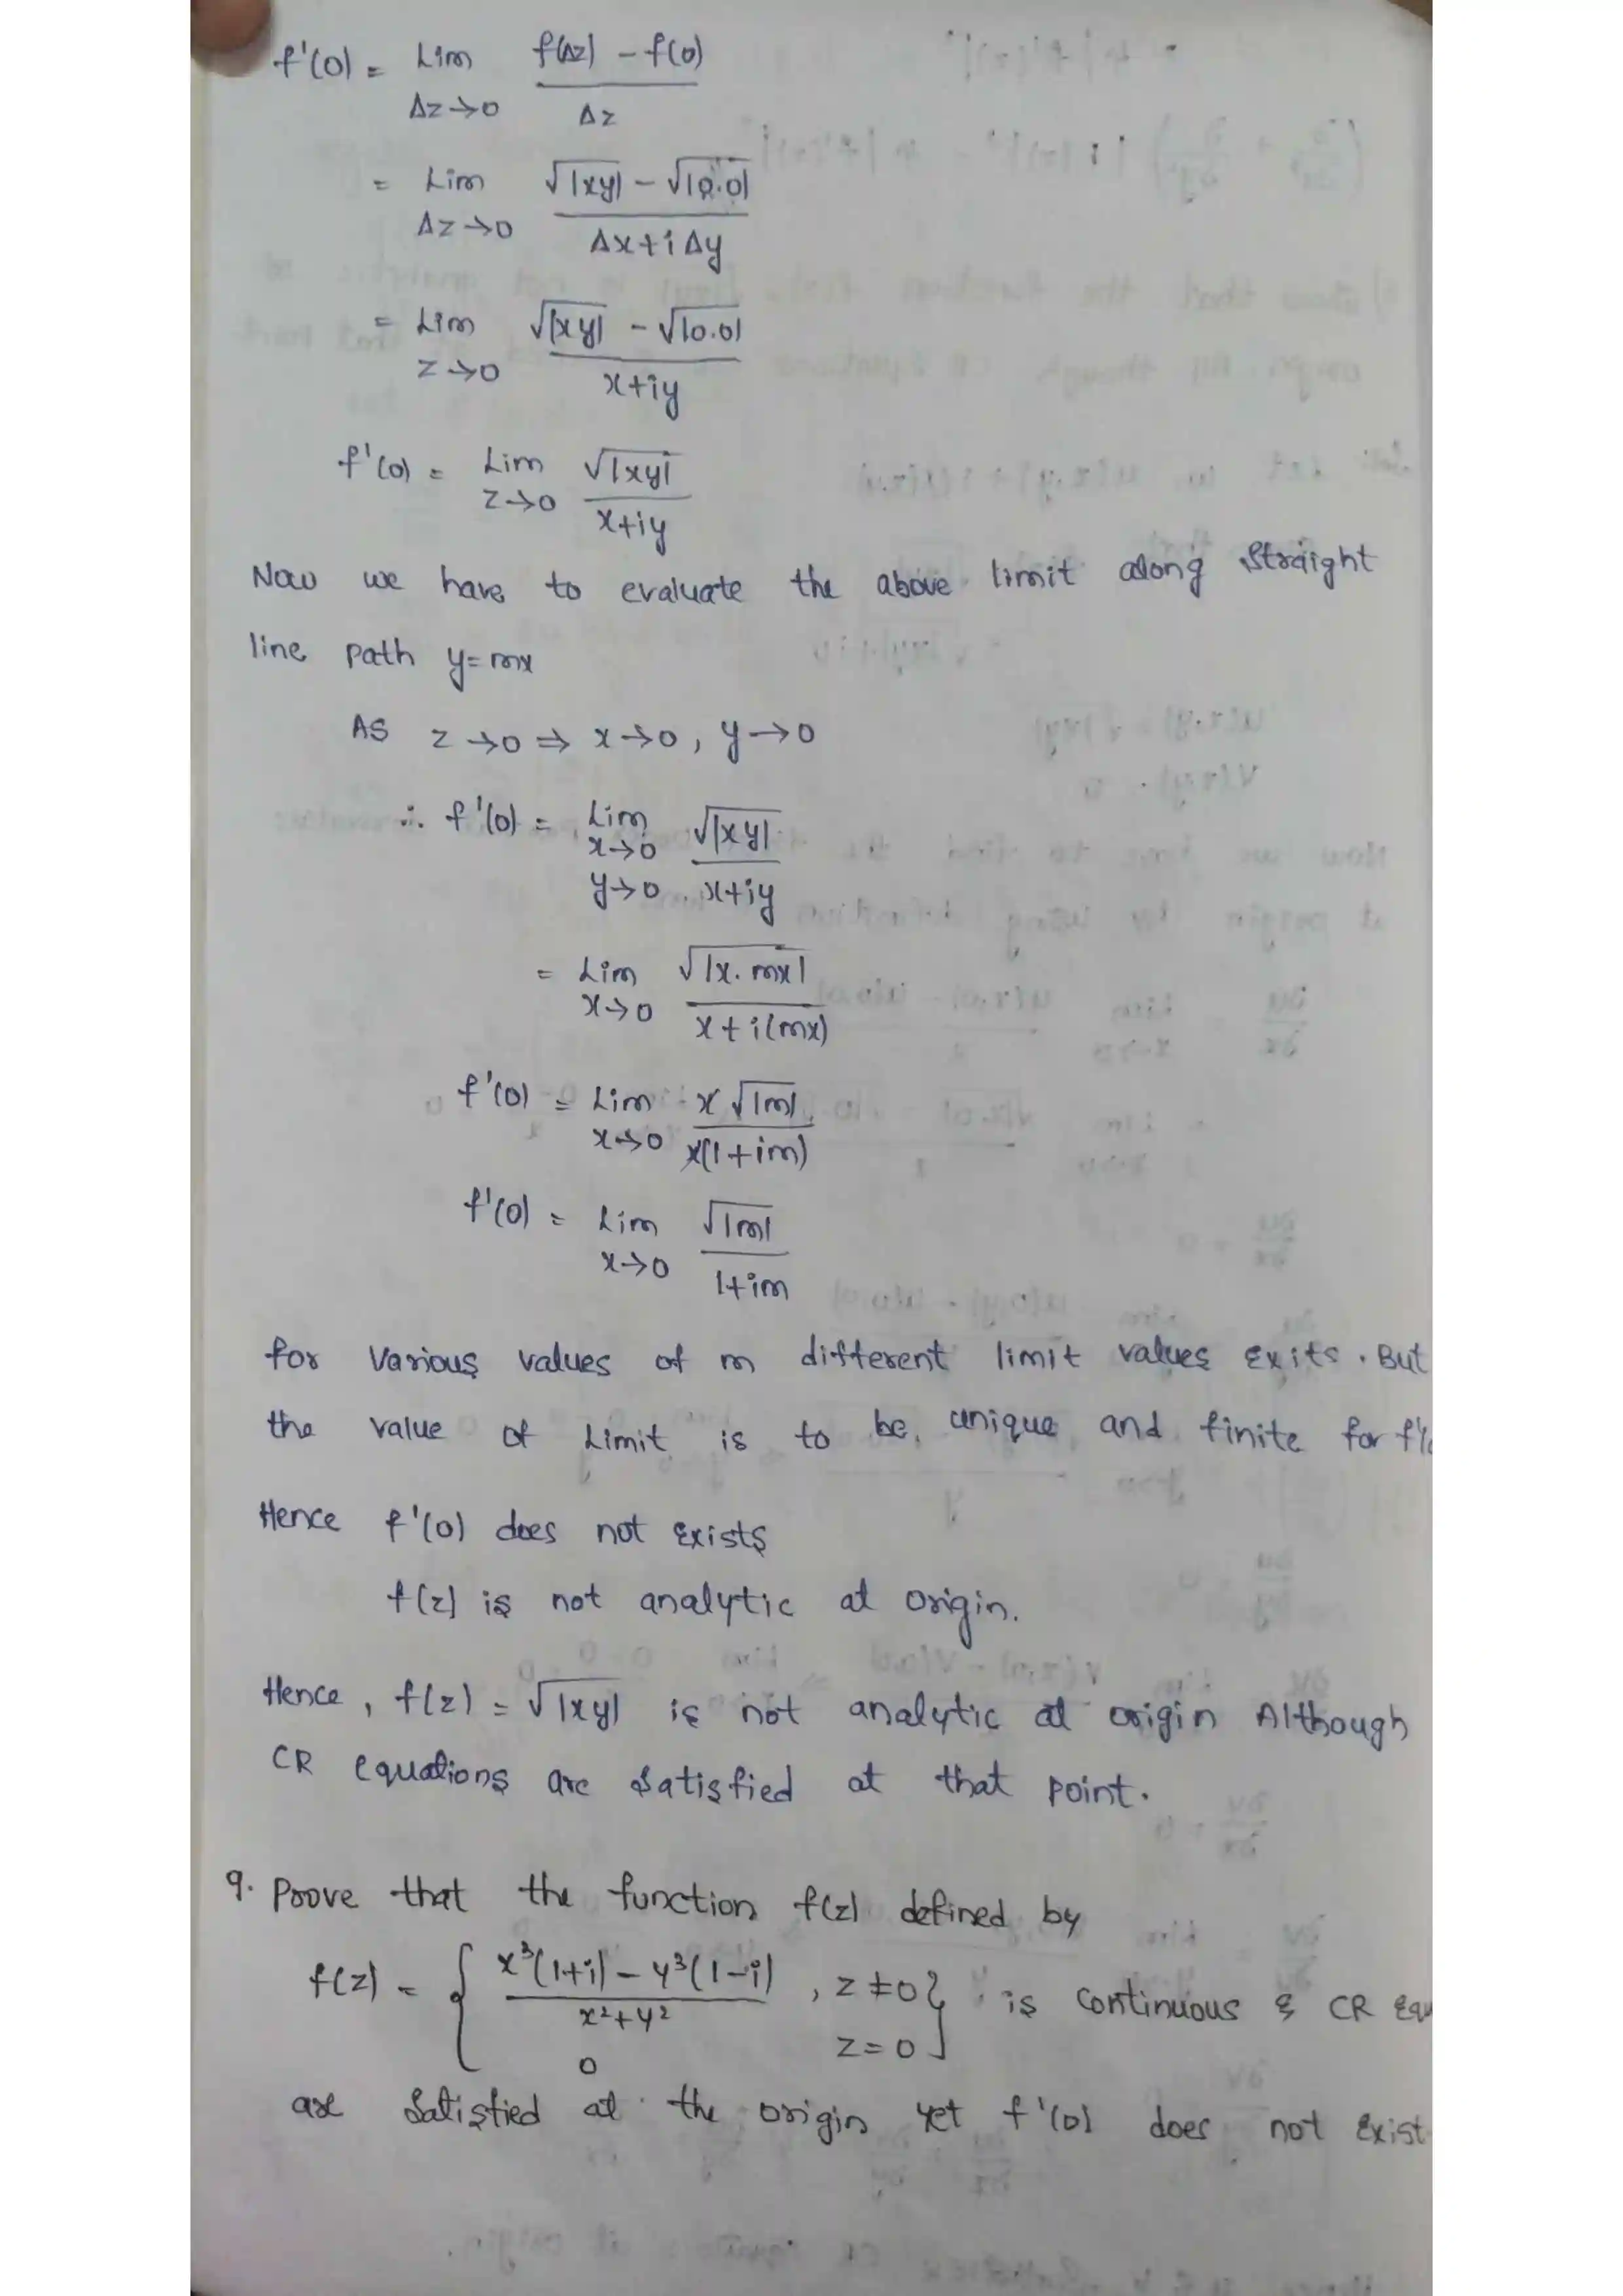 f'(0) = Lim Δz→0 f(Δz) - f(0) / Δz
= Lim Δz→0 √|xy| - √|0.0| / Δx+iΔy
= Lim z→0 √|xy| - √|0.0| / x+iy
f'(0) = Lim z→0 √|xy| / x+iy
Now we have to evaluate the above limit along straight
line path y=mx
As z→0 ⇒ x→0, y→0
∴ f'(0) = Lim x→0 y→0 √|xy| / x+iy
= Lim x→0 √|x.mx| / x+i(mx)
f'(0) = Lim x→0 x√|m| / x(1+im)
f'(0) = Lim x→0 √|m| / 1+im
for various values of m different limit values exits. But
the value of Limit is to be unique and finite for f'(
Hence f'(0) does not exists
f(z) is not analytic at origin.
Hence, f(z) = √|xy| is not analytic at origin Although
CR equations are satisfied at that point.
9. Prove that the function f(z) defined by
f(z) = { x³(1+i) - y³(1-i) / x²+y² , z≠0 } is continuous & CR Equ
0 z=0
are satisfied at the origin yet f'(0) does not exist